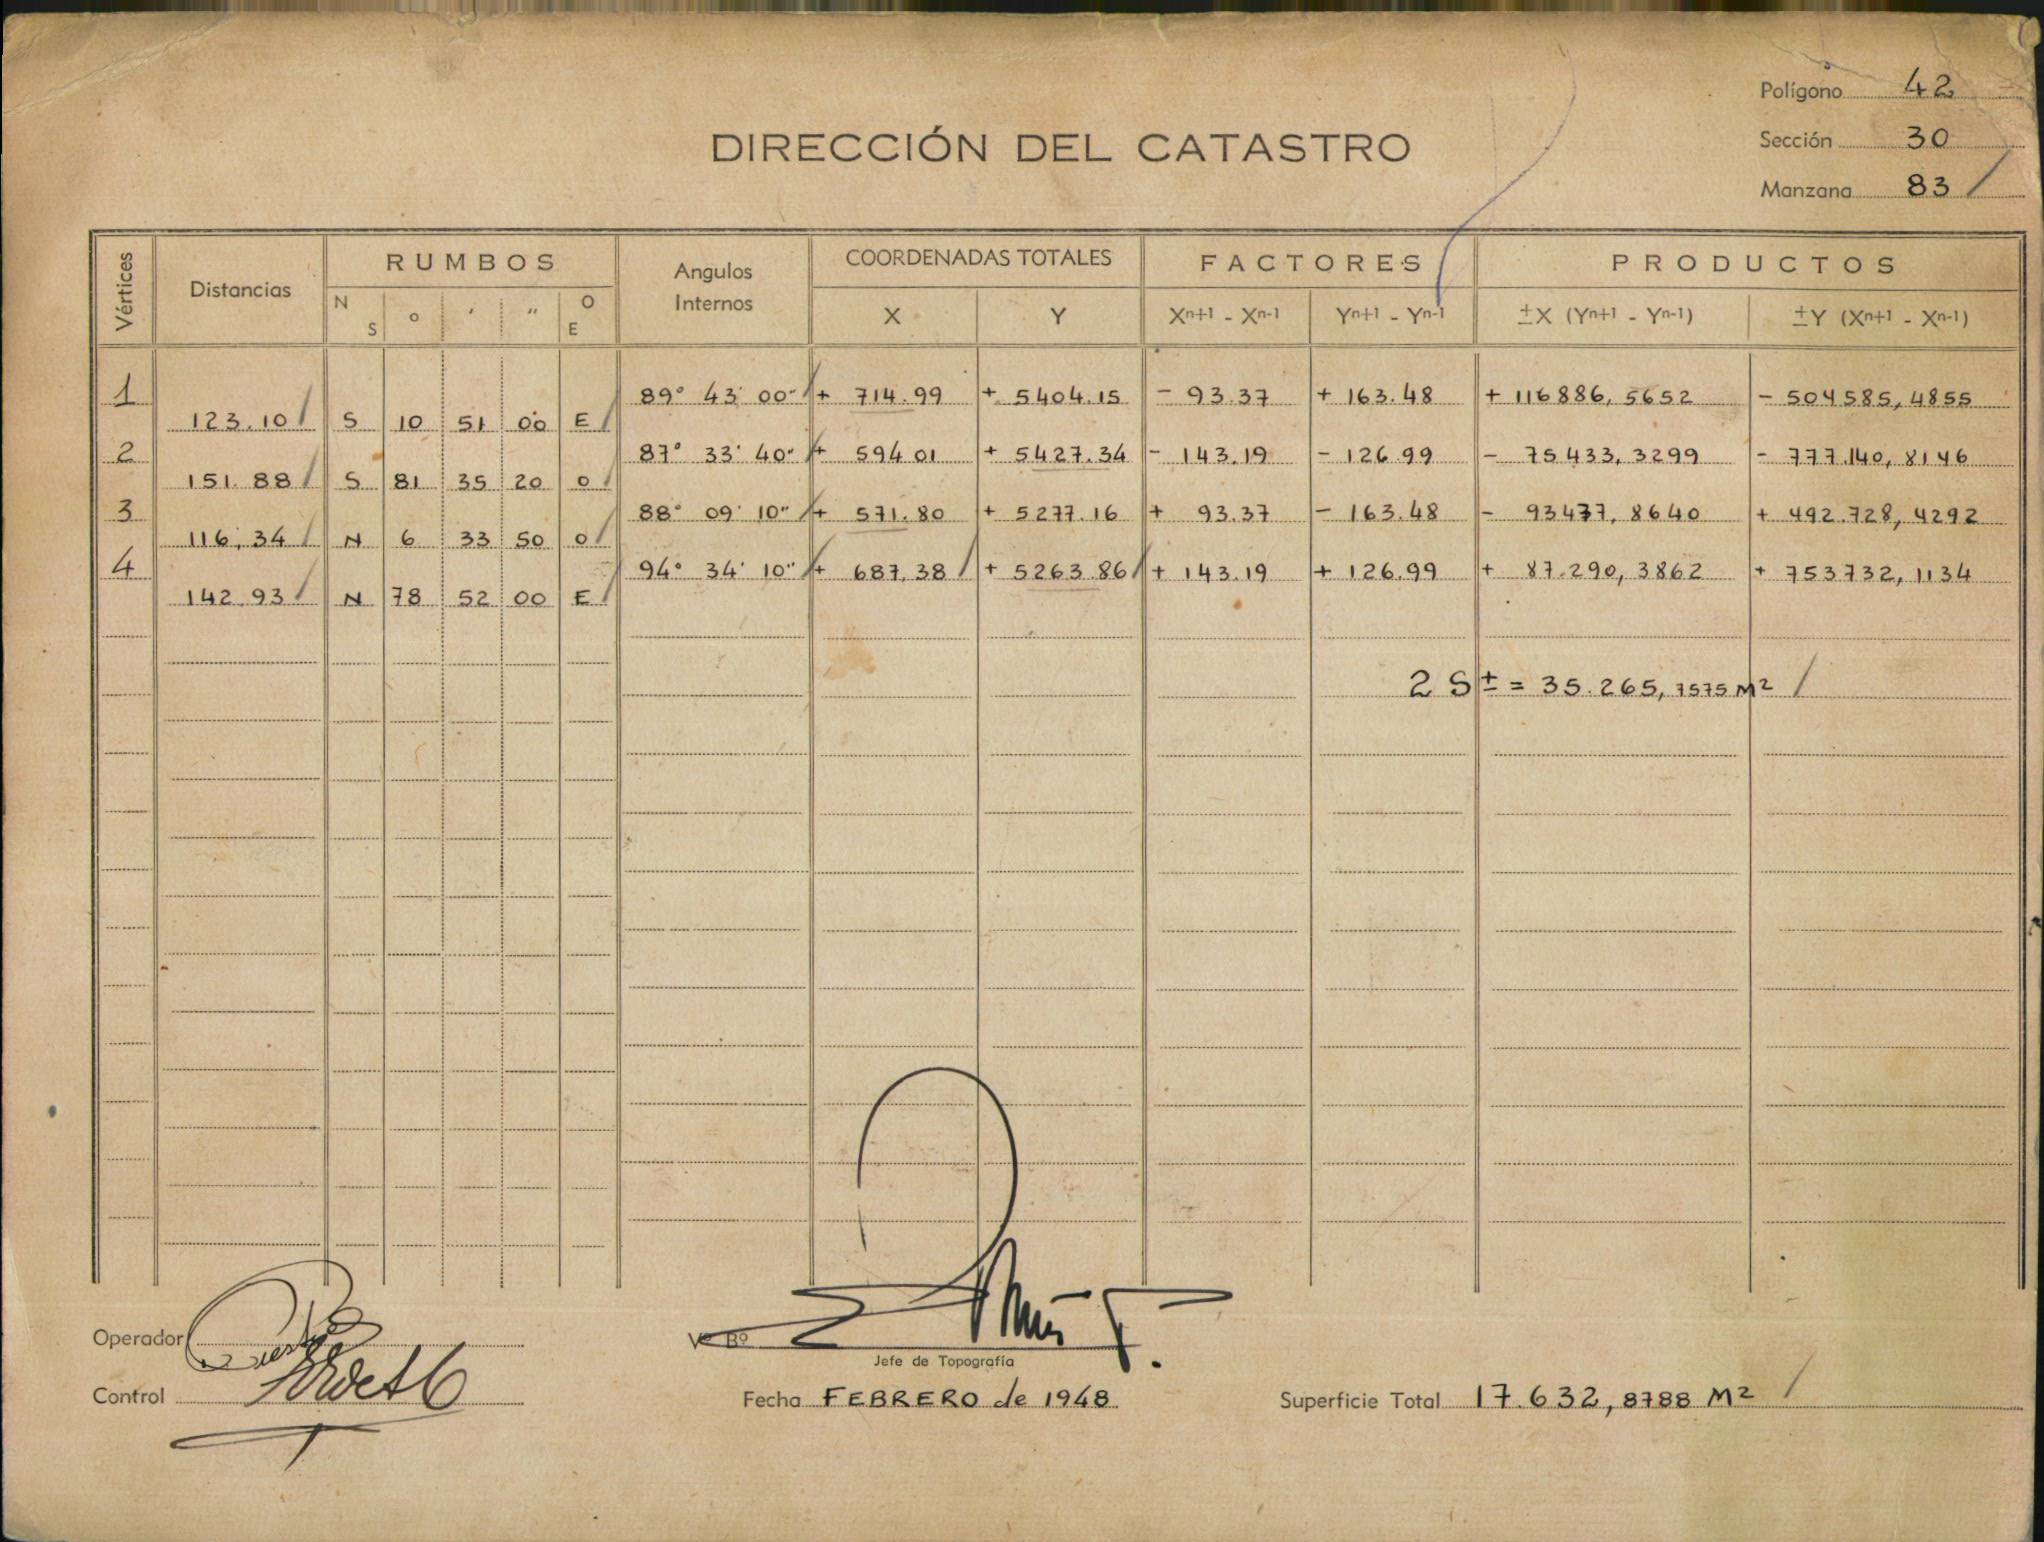 Polígono 42
DIRECCIÓN DEL CATASTRO
Sección 30
Manzana 83 /
Vértices Distancias RUMBOS Angulos Internos COORDENADAS TOTALES FACTORES PRODUCTOS
N S ° ' " O E X Y Xn+1 - Xn-1 Yn+1 - Yn-1 ±X (Yn+1 - Yn-1) ±Y (Xn+1 - Xn-1)
1 89° 43' 00" + 714.99 + 5404.15 - 93.37 + 163.48 + 116886,5652 - 504585,4855
123.10 S 10 51 00 E
2 87° 33' 40" + 594.01 + 5427.34 - 143.19 - 126.99 - 75433,3299 - 777.140,8146
151.88 S 81 35 20 O
3 88° 09' 10" + 571.80 + 5277.16 + 93.37 - 163.48 - 93477,8640 + 492.728,4292
116,34 N 6 33 50 O
4 94° 34' 10" + 687.38 + 5263.86 + 143.19 + 126.99 + 87.290,3862 + 753732,1134
142.93 N 78 52 00 E
2 S ± = 35.265,7575 M² /
Operador
Vº Bº
Jefe de Topografía
Control
Fecha FEBRERO de 1948
Superficie Total 17.632,8788 M² /